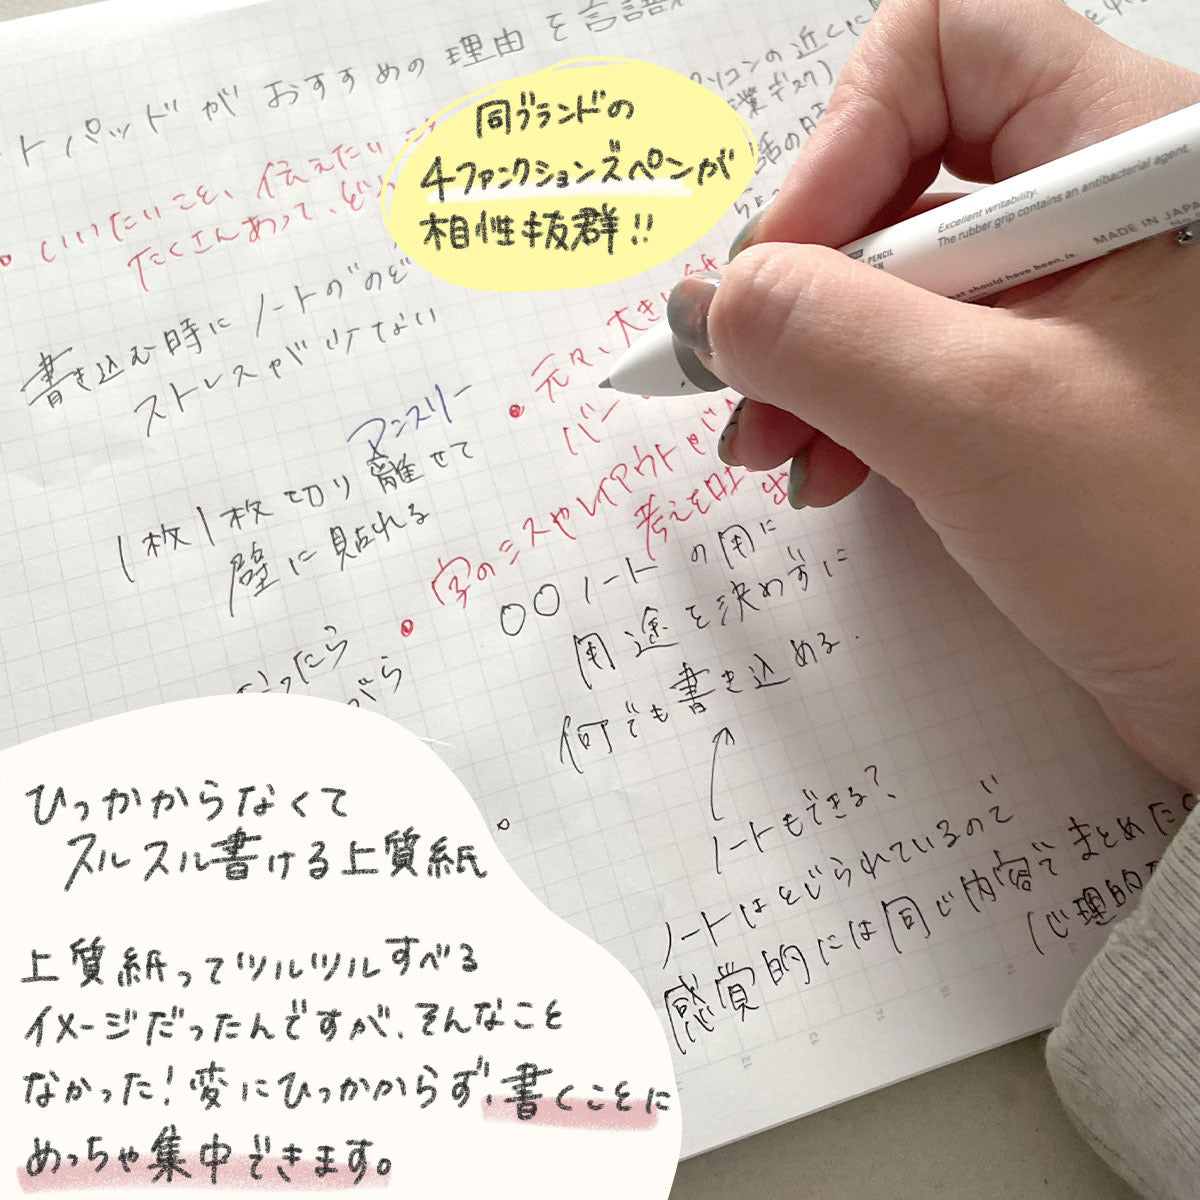 トパッドがおすすめの理由を言語
パソコンの近くに
いいたいこと、伝えたいこ
たくさんあって、ど
同ブランドの
4ファンクションズペンが
相性抜群!!
Excellent writability.
The rubber grip contains an antibacterial agent.
MADE IN JAPA
PENCIL
hat should have been, is.
書き込む時にノートの"のど
ストレスが少てない
元々、大きい紙
アンスリー
1枚1枚切り離せて
壁に貼れる
字のミスやレイアウトが
考えを吐
〇〇ノートの用に
用途を決めずに
何でも書き込める.
ったら
がら
ノートもできる?
ノートはとじられているので
感覚的には同じ内容でまとめた
心理的
ひっかからなくて
スルスル書ける上質紙
上質紙ってツルツルすべる
イメージだったんですが、そんなこと
なかった!変にひっかからず、書くことに
めっちゃ集中できます。
12
13
14
15